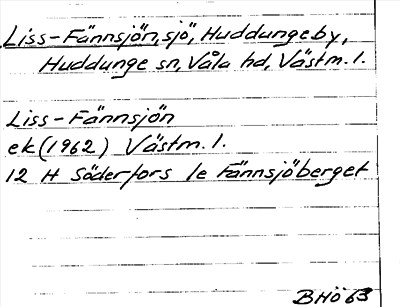 Liss-Fännsjön, sjö, Huddungeby,
Huddunge sn, Våla hd, Västm. l.
Liss-Fännsjön
ek (1962) Västm. l.
12 H Söderfors 1e Fännsjöberget
BHö 63